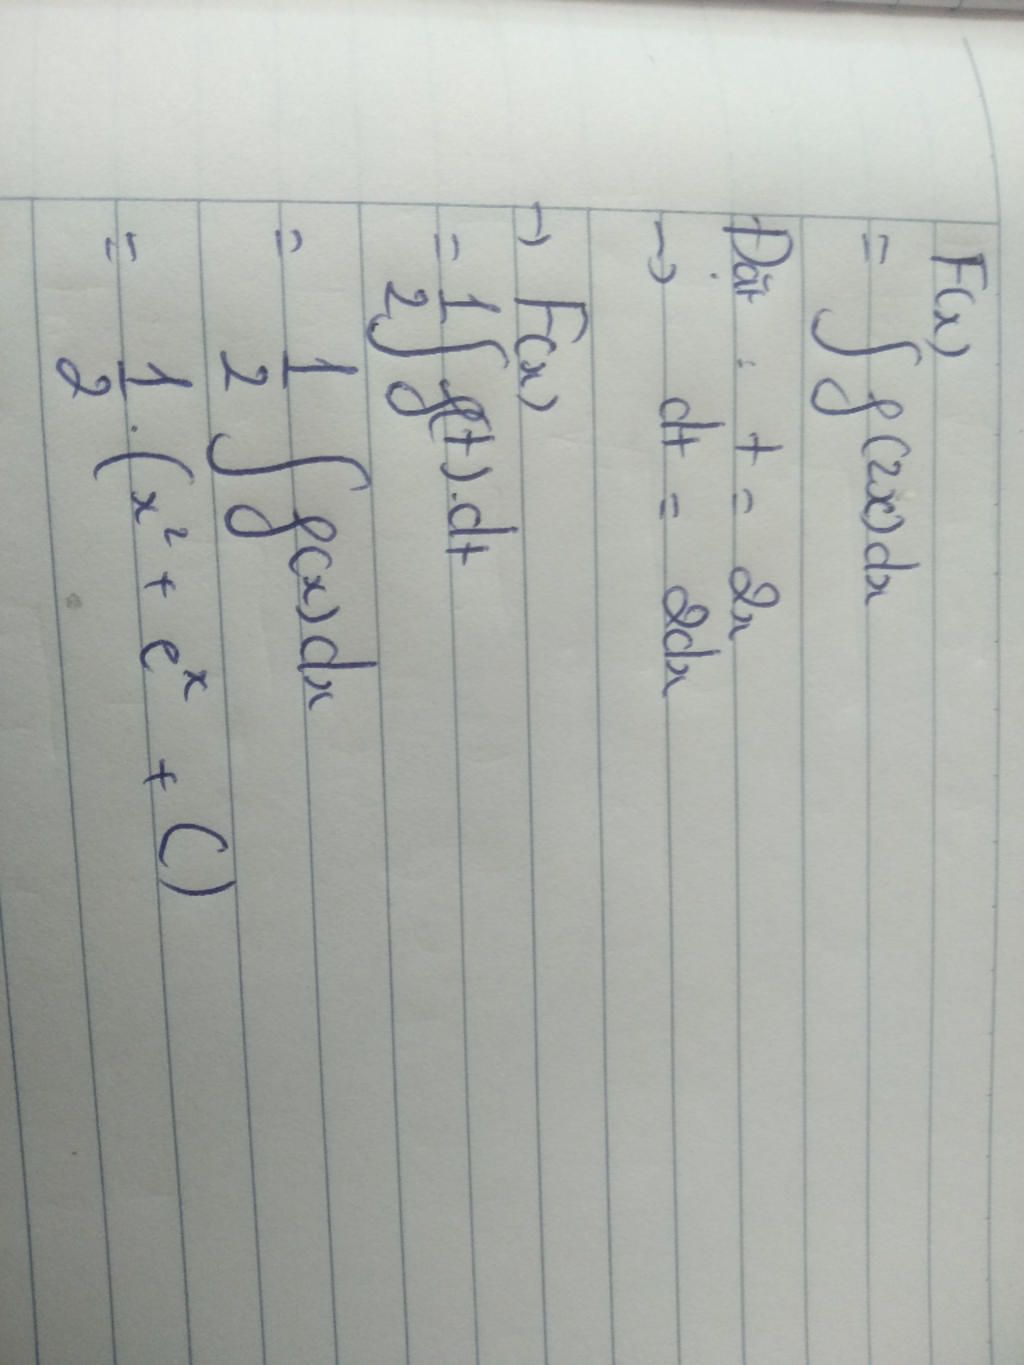 F(x)
= ∫ f(2x)dx
Đặt : t = 2x
→ dt = 2dx
→ F(x)
= 1/2 ∫ f(t).dt
= 1/2 ∫ f(x)dx
= 1/2 . (x² + eˣ + C)